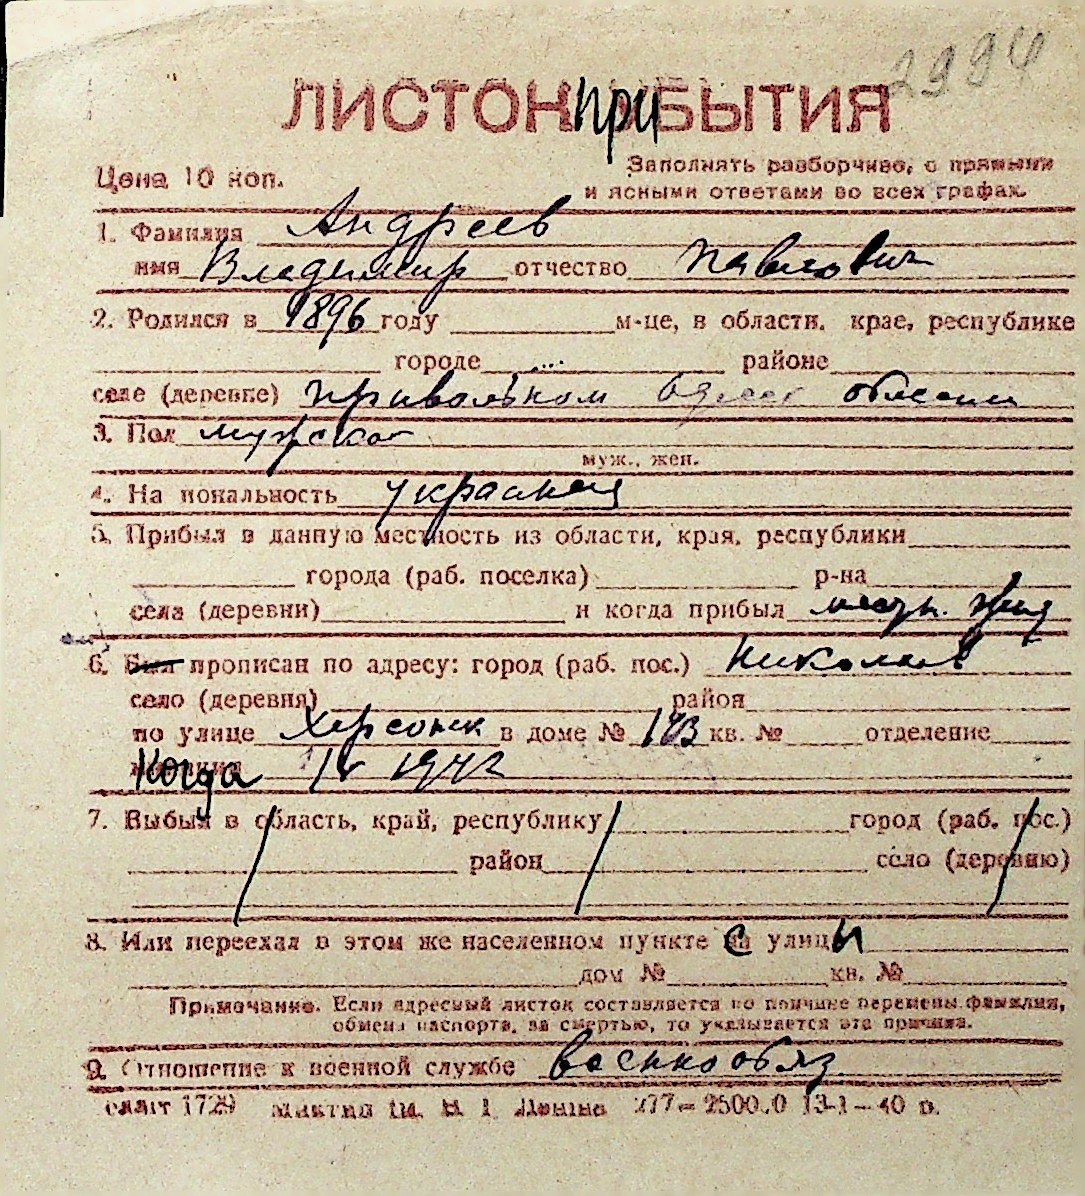 2994
ЛИСТОК ПРИБЫТИЯ
Цена 10 коп.
Заполнять разборчиво, с прямыми
и ясными ответами во всех графах.
1. Фамилия Андреев
имя Владимир отчество Павлович
2. Родился в 1896 году м-це, в области, крае, республике
городе районе
селе (деревне) Привольном Одесс области
3. Пол мужской
муж., жен.
4. На иональность украинец
5. Прибыл в данную местность из области, края, республики
города (раб. поселка) р-на
села (деревни) и когда прибыл местн. жит
6. Был прописан по адресу: город (раб. пос.) Николаев
село (деревня) район
по улице Херсонск в доме № 143 кв. № отделение
Когда 1942
7. Выбыл в область, край, республику город (раб. пос.)
район село (деревню)
8. Или переехал в этом же населенном пункте с улицы
дом № кв. №
Примечание. Если адресный листок составляется по причине перемены фамилии,
обмена паспорта, за смертью, то указывается эта причина.
9. Отношение к военной службе военнообяз
1729 277— 2500.0 13-1—40 р.